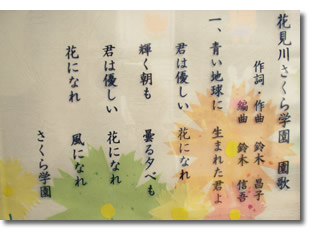 花見川さくら学園　園歌
作詞・作曲　鈴木　昌子
編曲　鈴木　信吾
一、青い地球に　生まれた君よ
君は優しい　花になれ
輝く朝も　曇る夕べも
君は優しい　花になれ
花になれ　風になれ
さくら学園